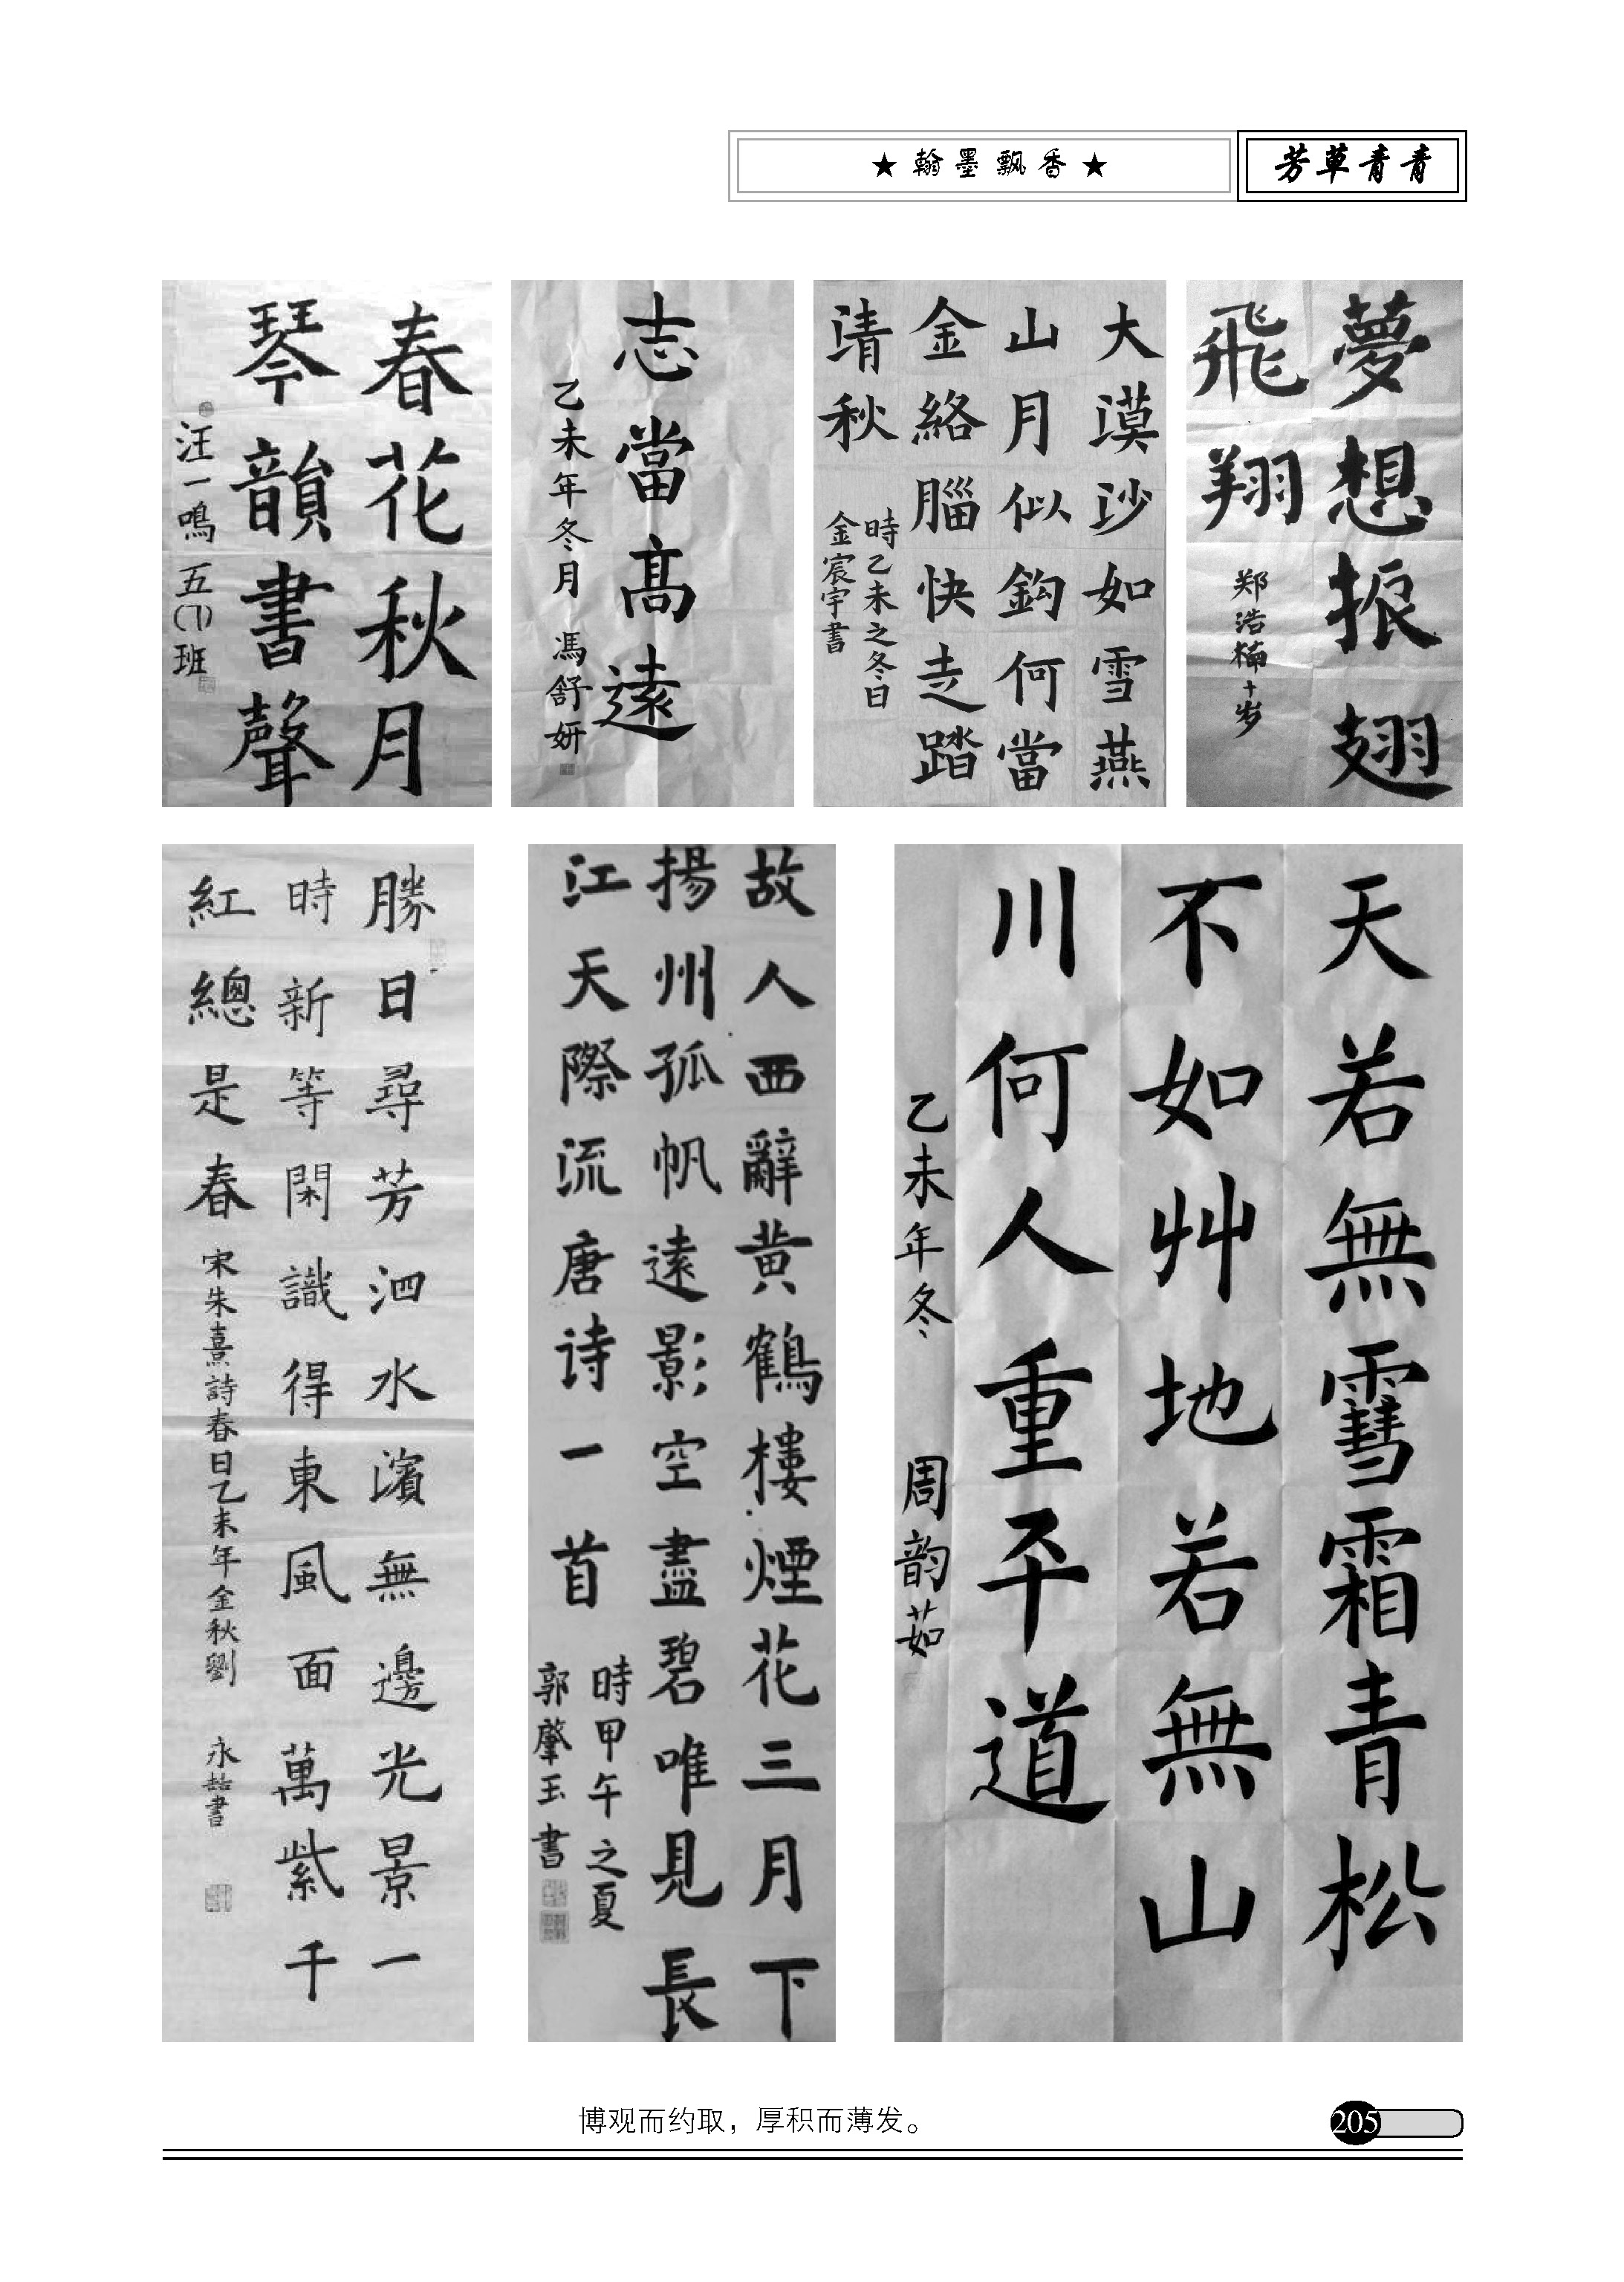 ★ 翰墨飘香 ★
芳草青青
夢想振翅
飛翔
郑浩楠十岁
大漠沙如雪燕
山月似鈎何當
金絡腦快走踏
清秋
時乙未之冬日
金宸宇書
志當高遠
乙未年冬月 馮舒妍
春花秋月
琴韻書聲
汪一鳴 五(1)班
天若無雪霜青松
不如艸地若無山
川何人重平道
乙未年冬 周韵茹
故人西辭黄鶴樓煙花三月下
揚州孤帆遠影空盡碧唯見長
江天際流唐诗一首
時甲午之夏
郭肇玉書
勝日尋芳泗水濱無邊光景一
時新等閑識得東風面萬紫千
紅總是春
宋朱熹詩春日乙未年金秋劉永喆書
博观而约取，厚积而薄发。
205